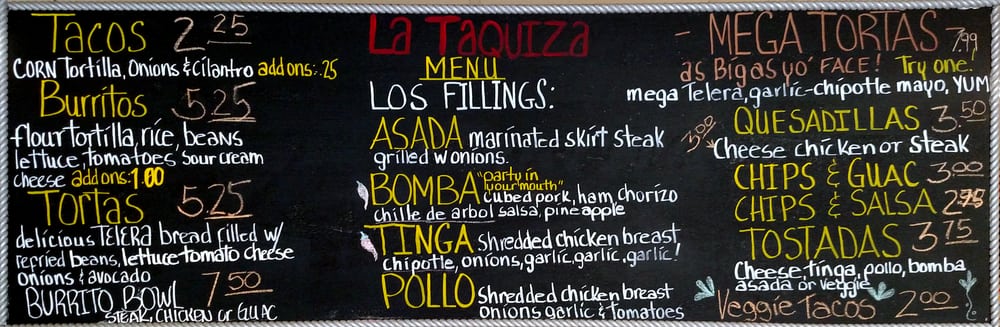 Tacos 2.25
CORN Tortilla, Onions & Cilantro add ons: .25
Burritos 5.25
flour tortilla, rice, beans
lettuce, tomatoes sour cream
cheese add ons: 1.00
Tortas 5.25
delicious TELERA bread filled w/
refried beans, lettuce tomato cheese
onions & avocado
BURRITO BOWL 7.50
STEAK, CHICKEN or GUAC
La TaQUIZa
MENU
LOS FILLINGS:
ASADA marinated skirt steak
grilled w onions.
BOMBA "party in your mouth"
cubed pork, ham, chorizo
chille de arbol salsa, pineapple
TINGA shredded chicken breast
chipotle, onions, garlic, garlic, garlic!
POLLO shredded chicken breast
onions garlic & tomatoes
- MEGA TORTAS 7.99
as Big as yo' FACE! Try one!
mega Telera, garlic-chipotle mayo, YUM
QUESADILLAS 3.50
3.00 Cheese chicken or steak
CHIPS & GUAC 3.00
CHIPS & SALSA 2.75
TOSTADAS 3.75
Cheese, tinga, pollo, bomba
asada or veggie
Veggie Tacos 2.00